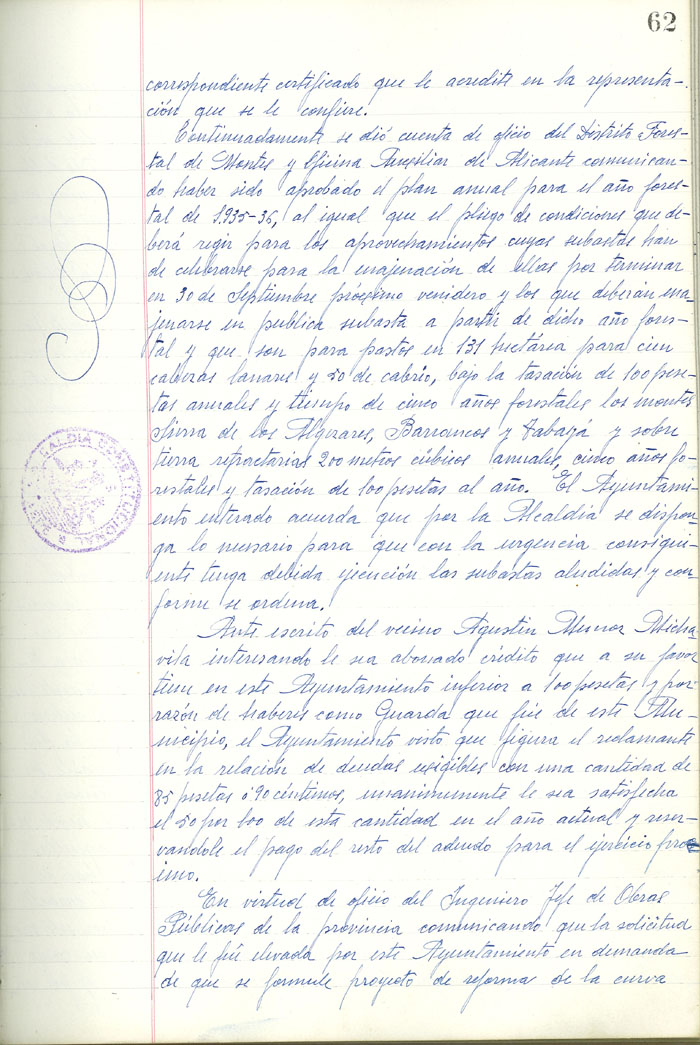 62
correspondiente certificado que le acredite en la representa-
ción que se le confiere.
Continuadamente se dió cuenta de oficio del Distrito Fores-
tal de Montes y Oficina Auxiliar de Alicante comunican-
do haber sido aprobado el plan anual para el año fores-
tal de 1.935-36, al igual que el pliego de condiciones que de-
berá regir para los aprovechamientos cuyas subastas han
de celebrarse para la enajenación de ellas por terminar
en 30 de Septiembre próximo venidero y los que deberán ena-
jenarse en publica subasta a partir de dicho año fores-
tal y que son para pastos en 131 hectárea para cien
cabezas lanares y 50 de cabrio, bajo la tasación de 100 pese-
tas anuales y tiempo de cinco años forestales los montes
Sierra de los Algezares, Barrancos y Tabayá y sobre
tierra refractarias 200 metros cúbicos anuales, cinco años fo-
restales y tasación de 100 pesetas al año. El Ayuntami-
ento enterado acuerda que por la Alcaldia se dispon-
ga lo necesario para que con la urgencia consigui-
ente tenga debida ejecución las subastas aludidas y con-
forme se ordena.
Ante escrito del vecino Agustin Muñoz Micha-
vila interesando le sea abonado crédito que a su favor
tiene en este Ayuntamiento inferior a 100 pesetas y por
razón de haberes como Guarda que fué de este Mu-
nicipio, el Ayuntamiento visto que figura el reclamante
en la relación de deudas exigibles con una cantidad de
85 pesetas 90 céntimos, unanimemente le sea satisfecha
el 50 por 100 de esta cantidad en el año actual y reser-
vandole el pago del resto del adeudo para el ejercicio prox
imo.
En virtud de oficio del Ingeniero Jefe de Obras
Públicas de la provincia comunicando que la solicitud
que le fué elevada por este Ayuntamiento en demanda
de que se formule proyecto de reforma de la curva
ALCALDIA CONSTITUCIONAL